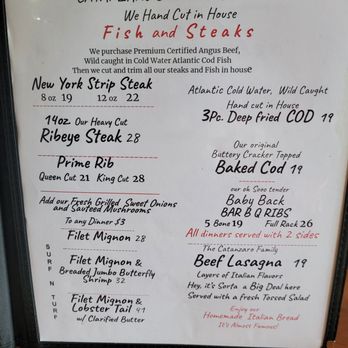 We Hand Cut in House
Fish and Steaks
We purchase Premium Certified Angus Beef,
Wild caught in Cold Water Atlantic Cod Fish
Then we cut and trim all our steaks and Fish in house
New York Strip Steak
8 oz 19 12 oz 22
14oz Our Heavy Cut
Ribeye Steak 28
Prime Rib
Queen Cut 21 King Cut 28
Add our Fresh Grilled Sweet Onions
and Sauteed Mushrooms
To any Dinner $3
SURF N TURF
Filet Mignon 28
Filet Mignon &
Breaded Jumbo Butterfly
Shrimp 32
Filet Mignon &
Lobster Tail 41
w/ Clarified Butter
Atlantic Cold Water, Wild Caught
Hand cut in House
3Pc. Deep fried COD 19
Our original
Buttery Cracker Topped
Baked Cod 19
our oh Sooo tender
Baby Back
BAR B Q RIBS
5 Bone 19 Full Rack 26
All dinners served with 2 sides
The Catanzaro Family
Beef Lasagna 19
Layers of Italian Flavors
Hey, it's Sorta a Big Deal here
Served with a fresh Tossed Salad
Enjoy our
Homemade Italian Bread
It's Almost Famous!